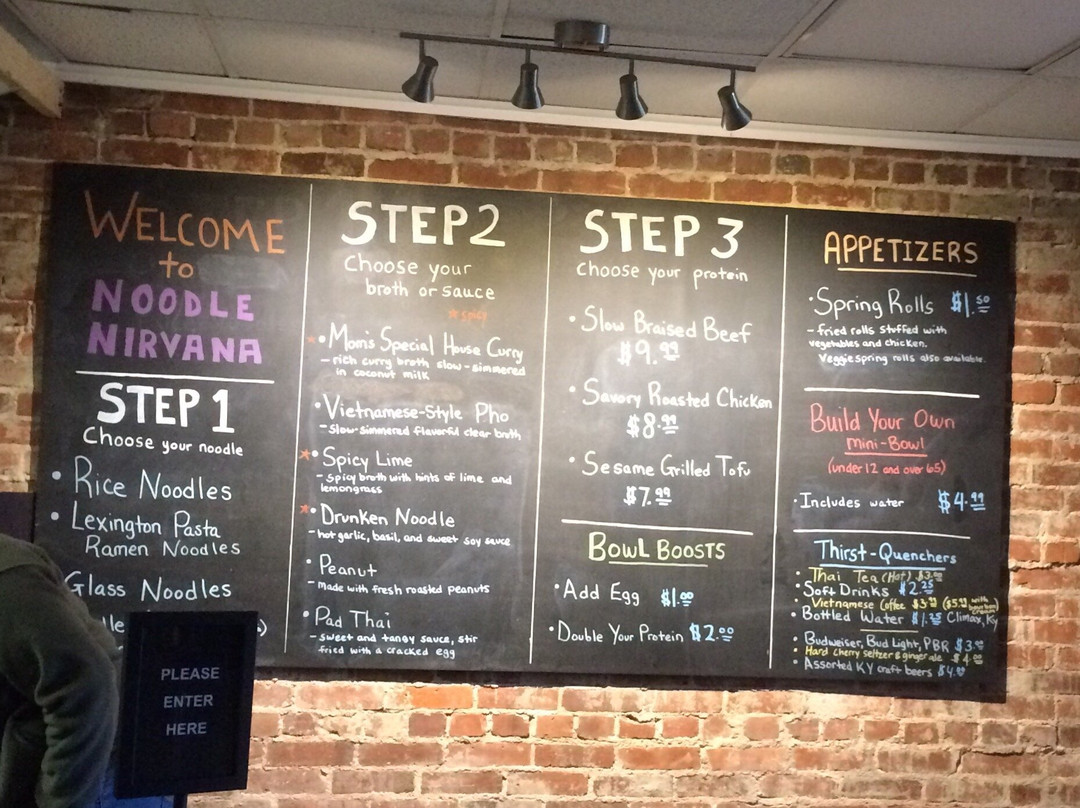 WELCOME
to
NOODLE
NIRVANA
STEP 1
Choose your noodle
• Rice Noodles
• Lexington Pasta
Ramen Noodles
Glass Noodles
STEP 2
Choose your
broth or sauce
★spicy
★• Mom's Special House Curry
- rich curry broth slow-simmered
in coconut milk
• Vietnamese-Style Pho
- slow-simmered flavorful clear broth
★• Spicy Lime
- spicy broth with hints of lime and
lemongrass
★• Drunken Noodle
- hot garlic, basil, and sweet soy sauce
• Peanut
- made with fresh roasted peanuts
• Pad Thai
- sweet and tangy sauce, stir
fried with a cracked egg
STEP 3
Choose your protein
• Slow Braised Beef
$9.99
• Savory Roasted Chicken
$8.99
• Sesame Grilled Tofu
$7.99
BOWL BOOSTS
• Add Egg $1.00
• Double Your Protein $2.00
APPETIZERS
• Spring Rolls $1.50
- fried rolls stuffed with
vegetables and chicken.
Veggie spring rolls also available.
Build Your Own
Mini-Bowl
(under 12 and over 65)
• Includes water $4.99
Thirst-Quenchers
• Thai Tea (Hot) $3.00
• Soft Drinks $2.25
• Vietnamese Coffee
• Bottled Water $1.75 Climax, Ky
• Budweiser, Bud Light, PBR $3.00
• Hard cherry seltzer & ginger ale $4.00
• Assorted KY craft beers $4.00
PLEASE
ENTER
HERE